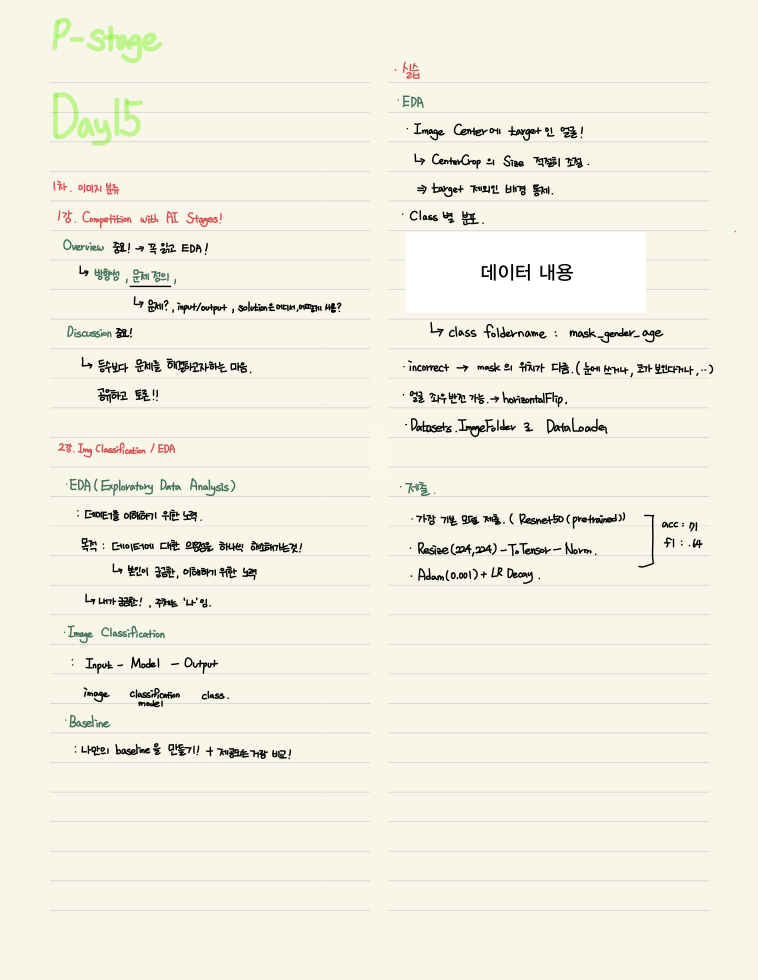 P-stage
Day15
1차. 이미지 분류
1강. Competition with AI Stages!
Overview 중요! → 꼭 읽고 EDA!
↳ 방향성, 문제정의,
↳ 문제?, input/output, solution은 어디서, 어떻게 사용?
Discussion 중요!
↳ 등수보다 문제를 해결하고자하는 마음.
공유하고 토론!!
2강. Img Classification / EDA
· EDA (Exploratory Data Analysis)
: 데이터를 이해하기 위한 노력.
목적 : 데이터에 대한 의문점을 하나씩 해소해가는것!
↳ 본인이 궁금한, 이해하기 위한 노력
↳ 내가 궁금한!, 주체는 '나'임.
· Image Classification
: Input - Model - Output
image classification model class.
· Baseline
: 나만의 baseline을 만들기! + 제공되는거랑 비교!
· 실습
· EDA
· Image Center에 target인 얼굴!
↳ CenterCrop의 Size 적절히 조절.
⇒ target 제외인 배경 통제.
· Class 별 분포.
데이터 내용
↳ class foldername : mask_gender_age
· incorrect → mask의 위치가 다름. (눈에 쓰거나, 코가 보인다거나, ..)
· 얼굴 좌우반전 가능. → horizontalFlip.
· Datasets.ImageFolder 로 DataLoader
· 제출.
· 가장 기본 모델 제출. (Resnet50 (pretrained))
· Resize(224,224) - ToTensor - Norm.
· Adam(0.001) + LR Decay.
acc : 71
f1 : .64